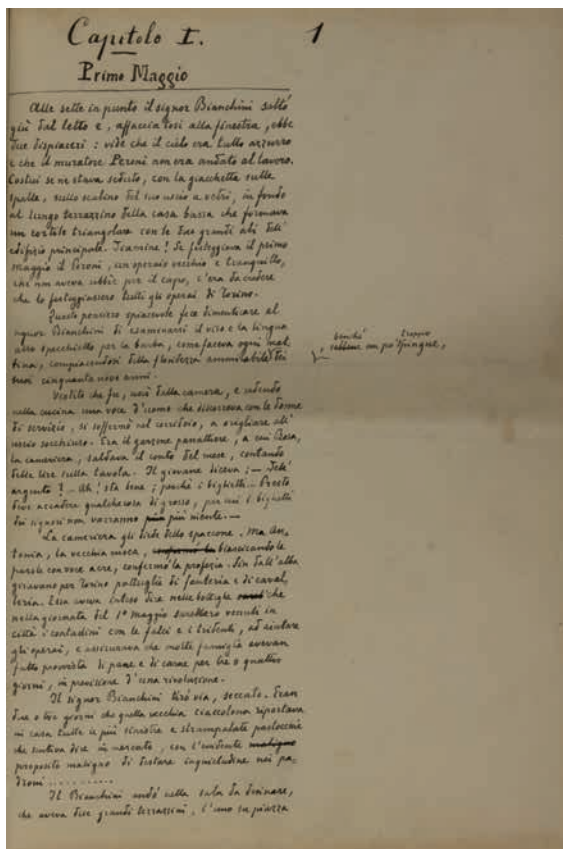 Capitolo I.
1
Primo Maggio
Alle sette in punto il signor Bianchini saltò
giù dal letto e, affacciatosi alla finestra, ebbe
due dispiaceri: vide che il cielo era tutto azzurro
e che il muratore Peroni non era andato al lavoro.
Costui se ne stava seduto, con la giacchetta sulle
spalle, sullo scalino del suo uscio a vetri, in fondo
al lungo terrazzino della casa bassa che formava
un cortile triangolare con le due grandi ali dell'
edifizio principale. Se festeggiava il primo
maggio il Peroni, un operaio vecchio e tranquillo,
che non aveva ubbie per il capo, c'era da credere
che lo festeggiassero tutti gli operai di Torino.
Questo pensiero spiacevole fece dimenticare al
signor Bianchini di esaminarsi il viso e la lingua
allo specchietto per la barba, come faceva ogni mat
tina, compiacendosi della floridezza ammirabile dei
suoi cinquanta nove anni.
benchè troppo
sebbene un po' pingue,
Vestito che fu, uscì dalla camera, e udendo
nella cucina una voce d'uomo che discorreva con le donne
di servizio, si soffermò nel corridoio, a origliare all'
uscio socchiuso. Era il garzone panattiere, a cui Rosa,
la cameriera, saldava il conto del mese, contando
delle lire sulla tavola. Il giovane diceva: —
argento? — Ah! sta bene; perchè i biglietti... Presto
deve accadere qualchecosa di grosso, per cui i biglietti
dei signori non varranno più più niente. —
La cameriera gli diede dello spaccone. Ma An-
tonia, la vecchia cuoca, confermò la biascicando le
parole con voce acre, confermò la profezia. Sin dall'alba
giravano per Torino pattuglie di fanteria e di caval
leria. Essa aveva inteso dire nelle botteghe che
nella giornata del 1º maggio sarebbero venuti in
città i contadini con le falci e i tridenti, ad aiutare
gli operai, e assicurava che molte famiglie avevan
fatto provvista di pane e di carne per tre o quattro
giorni, in previsione d'una rivoluzione.
Il signor Bianchini tirò via, seccato. Eran
due o tre giorni che quella vecchia ciacciolona riportava
in casa tutte le più sinistre e strampalate pastocchie
che sentiva dire in mercato, con l'evidente maligno
proposito maligno di destare inquietudine nei pa-
droni ............
Il Bianchini andò nella sala da desinare,
che aveva due grandi terrazzini, l'uno su piazza